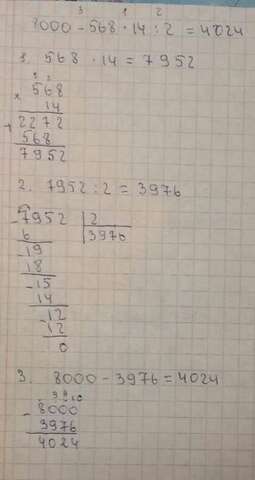 3 1 2
8000 - 568 · 14 : 2 = 4024
1. 568 · 14 = 7952
× 568
14
+ 2272
568
7952
2. 7952 : 2 = 3976
- 7952 | 2
6 | 3976
- 19
18
- 15
14
- 12
12
0
3. 8000 - 3976 = 4024
9 9 10
- 8000
3976
4024